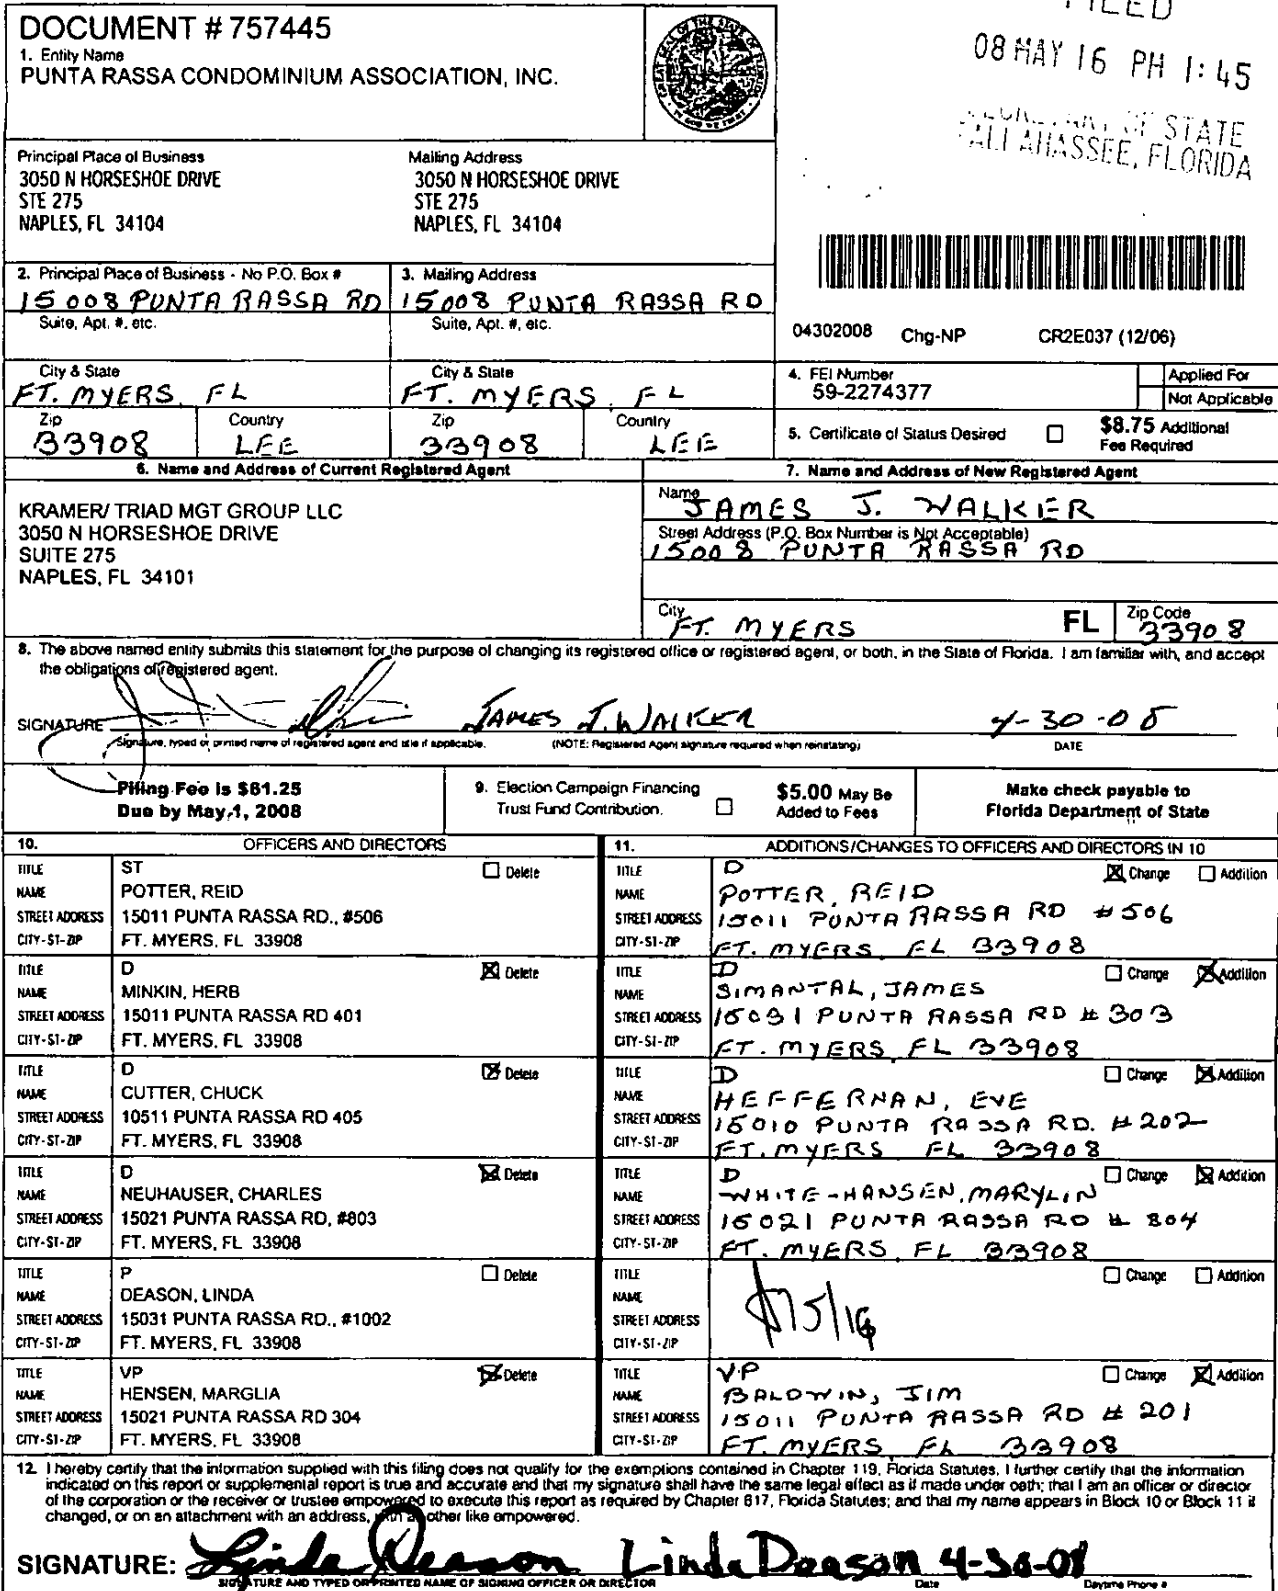 DOCUMENT # 757445
1. Entity Name
PUNTA RASSA CONDOMINIUM ASSOCIATION, INC.
FILED
08 MAY 16 PH 1:45
SECRETARY OF STATE
TALLAHASSEE, FLORIDA
Principal Place of Business
3050 N HORSESHOE DRIVE
STE 275
NAPLES, FL 34104
Mailing Address
3050 N HORSESHOE DRIVE
STE 275
NAPLES, FL 34104
2. Principal Place of Business - No P.O. Box #
15008 PUNTA RASSA RD
Suite, Apt. #, etc.
City & State
FT. MYERS, FL
Zip
33908
Country
LEE
3. Mailing Address
15008 PUNTA RASSA RD
Suite, Apt. #, etc.
City & State
FT. MYERS, FL
Zip
33908
Country
LEE
04302008 Chg-NP CR2E037 (12/06)
4. FEI Number
59-2274377
Applied For
Not Applicable
5. Certificate of Status Desired
$8.75 Additional
Fee Required
6. Name and Address of Current Registered Agent
KRAMER/ TRIAD MGT GROUP LLC
3050 N HORSESHOE DRIVE
SUITE 275
NAPLES, FL 34101
7. Name and Address of New Registered Agent
Name
JAMES J. WALKER
Street Address (P.O. Box Number is Not Acceptable)
15008 PUNTA RASSA RD
City
FT. MYERS
FL
Zip Code
33908
8. The above named entity submits this statement for the purpose of changing its registered office or registered agent, or both, in the State of Florida. I am familiar with, and accept
the obligations of registered agent.
SIGNATURE JAMES J. WALKER 4-30-08
Signature, typed or printed name of registered agent and title if applicable. (NOTE: Registered Agent signature required when reinstating) DATE
Filing Fee is $61.25
Due by May 1, 2008
9. Election Campaign Financing
Trust Fund Contribution.
$5.00 May Be
Added to Fees
Make check payable to
Florida Department of State
10. OFFICERS AND DIRECTORS
TITLE ST Delete
NAME POTTER, REID
STREET ADDRESS 15011 PUNTA RASSA RD., #506
CITY-ST-ZIP FT. MYERS, FL 33908
TITLE D Delete
NAME MINKIN, HERB
STREET ADDRESS 15011 PUNTA RASSA RD 401
CITY-ST-ZIP FT. MYERS, FL 33908
TITLE D Delete
NAME CUTTER, CHUCK
STREET ADDRESS 10511 PUNTA RASSA RD 405
CITY-ST-ZIP FT. MYERS, FL 33908
TITLE D Delete
NAME NEUHAUSER, CHARLES
STREET ADDRESS 15021 PUNTA RASSA RD, #803
CITY-ST-ZIP FT. MYERS, FL 33908
TITLE P Delete
NAME DEASON, LINDA
STREET ADDRESS 15031 PUNTA RASSA RD., #1002
CITY-ST-ZIP FT. MYERS, FL 33908
TITLE VP Delete
NAME HENSEN, MARGLIA
STREET ADDRESS 15021 PUNTA RASSA RD 304
CITY-ST-ZIP FT. MYERS, FL 33908
11. ADDITIONS/CHANGES TO OFFICERS AND DIRECTORS IN 10
TITLE D Change Addition
NAME POTTER, REID
STREET ADDRESS 15011 PUNTA RASSA RD #506
CITY-ST-ZIP FT. MYERS FL 33908
TITLE D Change Addition
NAME SIMANTAL, JAMES
STREET ADDRESS 15031 PUNTA RASSA RD #303
CITY-ST-ZIP FT. MYERS, FL 33908
TITLE D Change Addition
NAME HEFFERNAN, EVE
STREET ADDRESS 15010 PUNTA RASSA RD. #202
CITY-ST-ZIP FT. MYERS FL 33908
TITLE D Change Addition
NAME WHITE-HANSEN, MARYLIN
STREET ADDRESS 15021 PUNTA RASSA RD # 804
CITY-ST-ZIP FT. MYERS, FL 33908
TITLE Change Addition
NAME
STREET ADDRESS
CITY-ST-ZIP
TITLE VP Change Addition
NAME BALDWIN, JIM
STREET ADDRESS 15011 PUNTA RASSA RD # 201
CITY-ST-ZIP FT. MYERS FL 33908
12. I hereby certify that the information supplied with this filing does not qualify for the exemptions contained in Chapter 119, Florida Statutes. I further certify that the information
indicated on this report or supplemental report is true and accurate and that my signature shall have the same legal effect as if made under oath; that I am an officer or director
of the corporation or the receiver or trustee empowered to execute this report as required by Chapter 617, Florida Statutes; and that my name appears in Block 10 or Block 11 if
changed, or on an attachment with an address, with all other like empowered.
SIGNATURE: Linda Deason Linda Deason 4-30-08
SIGNATURE AND TYPED OR PRINTED NAME OF SIGNING OFFICER OR DIRECTOR Date Daytime Phone #